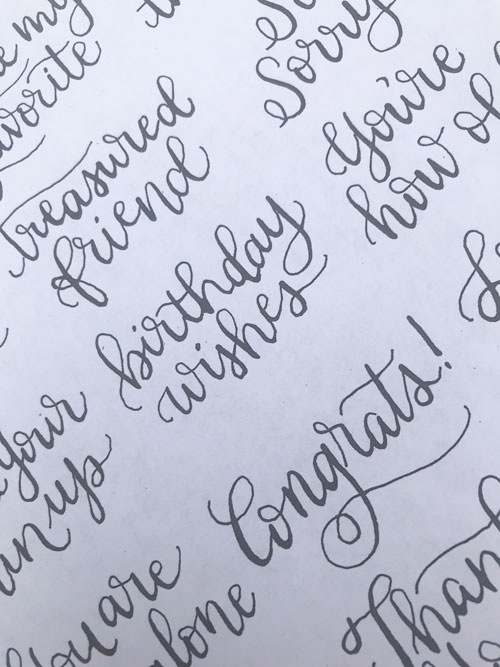 my
favorite
treasured
friend
Sorry
You're
how
birthday
wishes
your
up
Congrats!
You are
alone